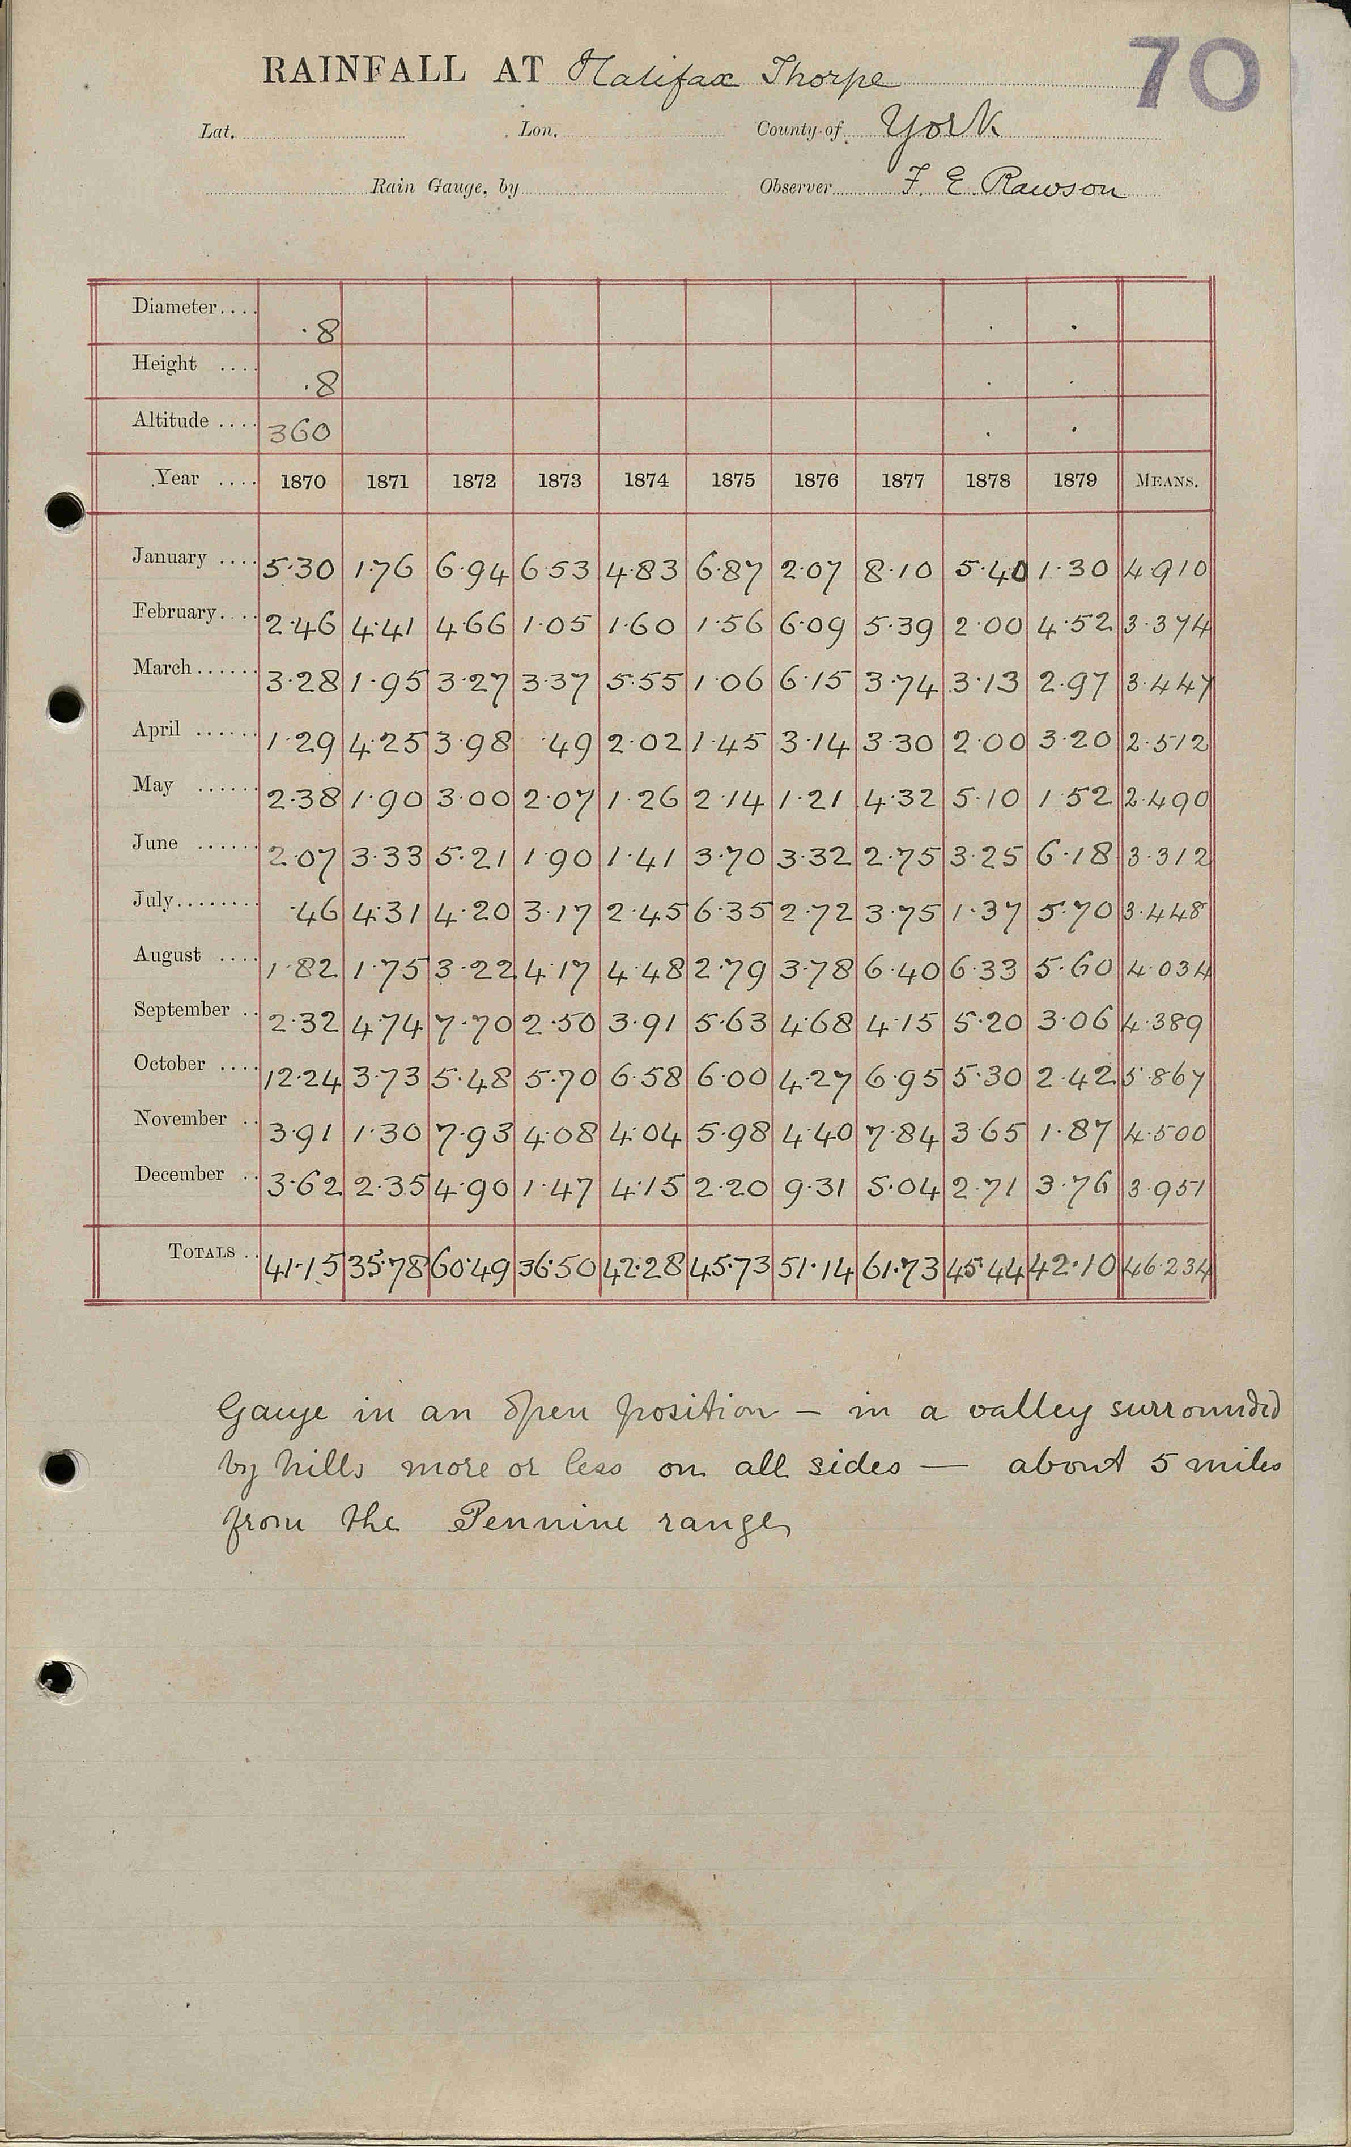 70
RAINFALL AT Halifax Thorpe
Lat. Lon. County of York
Rain Gauge, by Observer F. E. Rawson
Diameter.... ·8
Height .... ·8
Altitude .... 360
Year .... 1870 1871 1872 1873 1874 1875 1876 1877 1878 1879 MEANS.
January .... 5·30 1·76 6·94 6·53 4·83 6·87 2·07 8·10 5·40 1·30 4·910
February.... 2·46 4·41 4·66 1·05 1·60 1·56 6·09 5·39 2·00 4·52 3·374
March...... 3·28 1·95 3·27 3·37 5·55 1·06 6·15 3·74 3·13 2·97 3·447
April ...... 1·29 4·25 3·98 ·49 2·02 1·45 3·14 3·30 2·00 3·20 2·512
May ...... 2·38 1·90 3·00 2·07 1·26 2·14 1·21 4·32 5·10 1·52 2·490
June ...... 2·07 3·33 5·21 1·90 1·41 3·70 3·32 2·75 3·25 6·18 3·312
July........ ·46 4·31 4·20 3·17 2·45 6·35 2·72 3·75 1·37 5·70 3·448
August .... 1·82 1·75 3·22 4·17 4·48 2·79 3·78 6·40 6·33 5·60 4·034
September .. 2·32 4·74 7·70 2·50 3·91 5·63 4·68 4·15 5·20 3·06 4·389
October .... 12·24 3·73 5·48 5·70 6·58 6·00 4·27 6·95 5·30 2·42 5·867
November .. 3·91 1·30 7·93 4·08 4·04 5·98 4·40 7·84 3·65 1·87 4·500
December .. 3·62 2·35 4·90 1·47 4·15 2·20 9·31 5·04 2·71 3·76 3·951
TOTALS .. 41·15 35·78 60·49 36·50 42·28 45·73 51·14 61·73 45·44 42·10 46·234
Gauge in an open position — in a valley surrounded
by hills more or less on all sides — about 5 miles
from the Pennine range